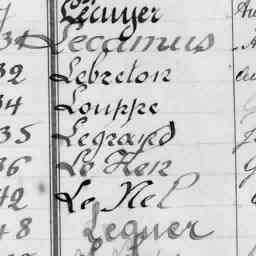 Lécuyer
34 Lecamus
32 Lebreton
34 Louppe
35 Legrand
36 Le Hen
42 Le Nel
48 Leguer